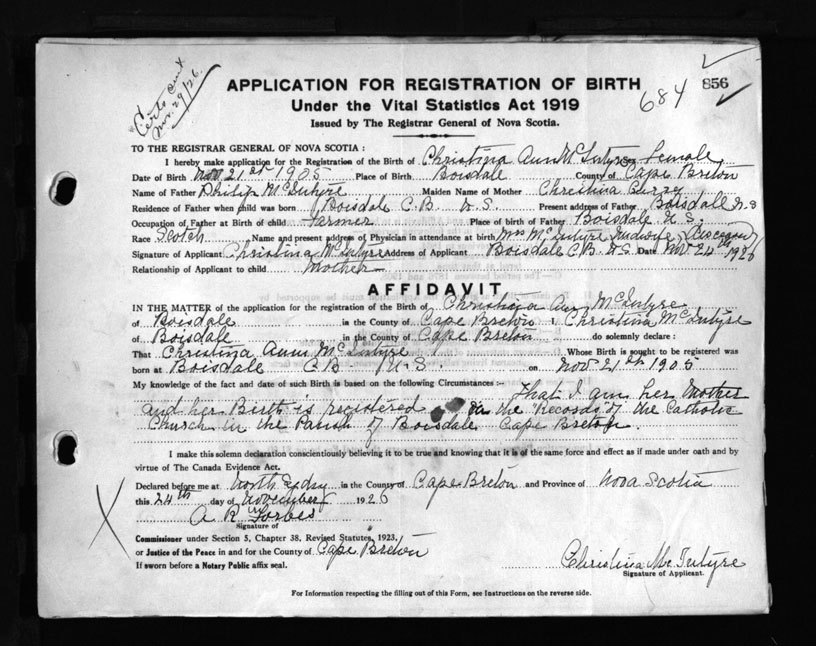 Certs sent
Nov. 29/26.
684
856
APPLICATION FOR REGISTRATION OF BIRTH
Under the Vital Statistics Act 1919
Issued by The Registrar General of Nova Scotia.
TO THE REGISTRAR GENERAL OF NOVA SCOTIA :
I hereby make application for the Registration of the Birth of Christina Ann McIntyre Female
Date of Birth Nov 21st 1905 Place of Birth Boisdale County of Cape Breton
Name of Father Philip McIntyre Maiden Name of Mother Christina Curry
Residence of Father when child was born Boisdale C.B. N.S. Present address of Father Boisdale N.S
Occupation of Father at Birth of child Farmer Place of birth of Father Boisdale N.S.
Race Scotch Name and present address of Physician in attendance at birth Mrs McIntyre Midwife (Deceased)
Signature of Applicant Christina McIntyre Address of Applicant Boisdale C.B. N.S. Date Nov 24th 1926
Relationship of Applicant to child Mother
AFFIDAVIT
IN THE MATTER of the application for the registration of the Birth of Christina Ann McIntyre
of Boisdale in the County of Cape Breton, Christina McIntyre
of Boisdale in the County of Cape Breton do solemnly declare :
That Christina Ann McIntyre Whose Birth is sought to be registered was
born at Boisdale C.B. N.S. on Nov 21st 1905
My knowledge of the fact and date of such Birth is based on the following Circumstances :- That I am her Mother
and her Birth is registered in the Records of the Catholic
Church in the Parish of Boisdale Cape Breton.
I make this solemn declaration conscientiously believing it to be true and knowing that it is of the same force and effect as if made under oath and by
virtue of The Canada Evidence Act.
Declared before me at North Sydney in the County of Cape Breton and Province of Nova Scotia
this 24th day of November 1926
A R Forbes
Signature of
Commissioner under Section 5, Chapter 38, Revised Statutes, 1923,
or Justice of the Peace in and for the County of Cape Breton
If sworn before a Notary Public affix seal.
Christina McIntyre
Signature of Applicant.
For Information respecting the filling out of this Form, see Instructions on the reverse side.